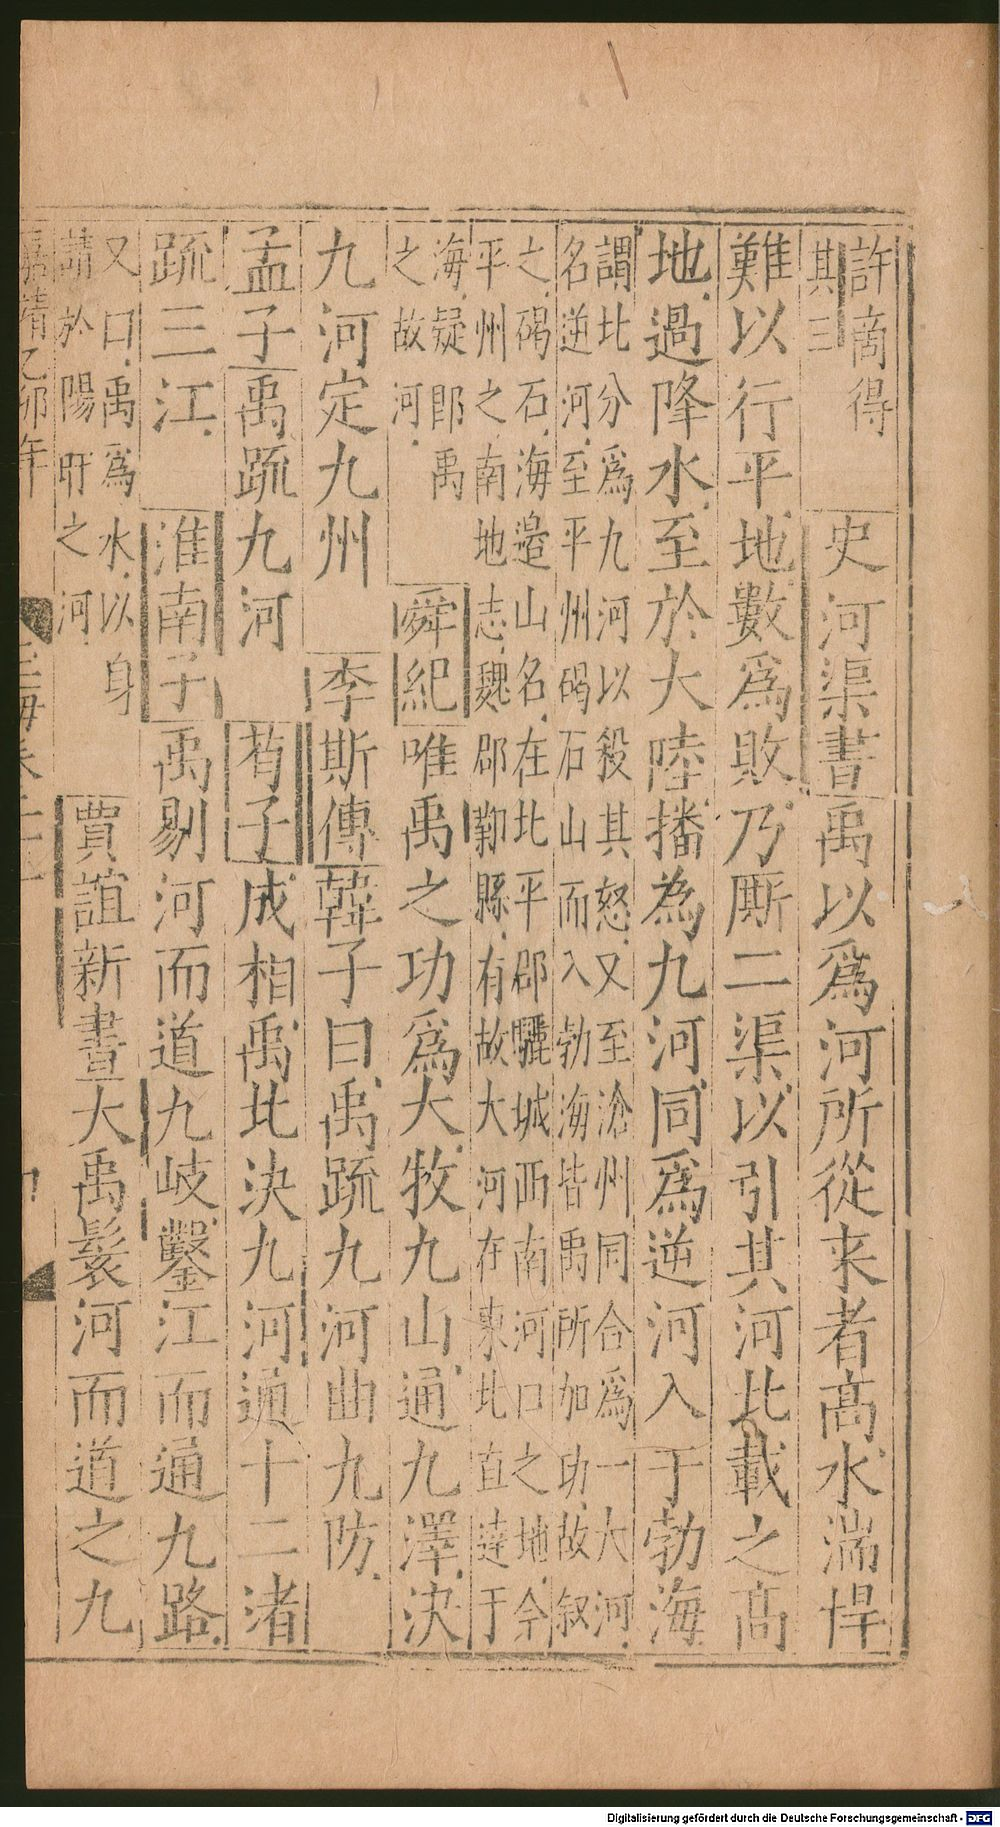 許商得
其三
史河渠書禹以爲河所從来者髙水湍悍
難以行平地數爲敗乃厮二渠以引其河北載之髙
地過降水至於大陸播為九河同爲逆河入于勃海
謂北分爲九河以殺其怒又至滄州同合爲一大河
名逆河至平州碣石山而入勃海皆禹所加功故叙
之碣石海邉山名在北平郡驪城西南河口之地今
平州之南地志魏郡鄴縣有故大河在東北直達于
海疑即禹
之故河
舜紀唯禹之功爲大牧九山通九澤決
九河定九州
李斯傳韓子曰禹䟽九河曲九防
孟子禹䟽九河
荀子成相禹北決九河通十二渚
䟽三江
淮南子禹剔河而道九岐鑿江而通九路
又口禹爲水以身
請於陽盱之河
賈誼新書大禹鬟河而道之九
嘉靖乙卯年
玉海卷二十一
Digitalisierung gefördert durch die Deutsche Forschungsgemeinschaft - DFG